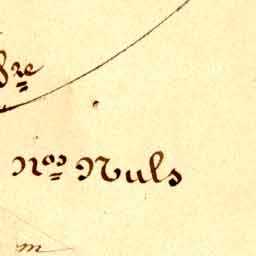 Nos Nuls
m